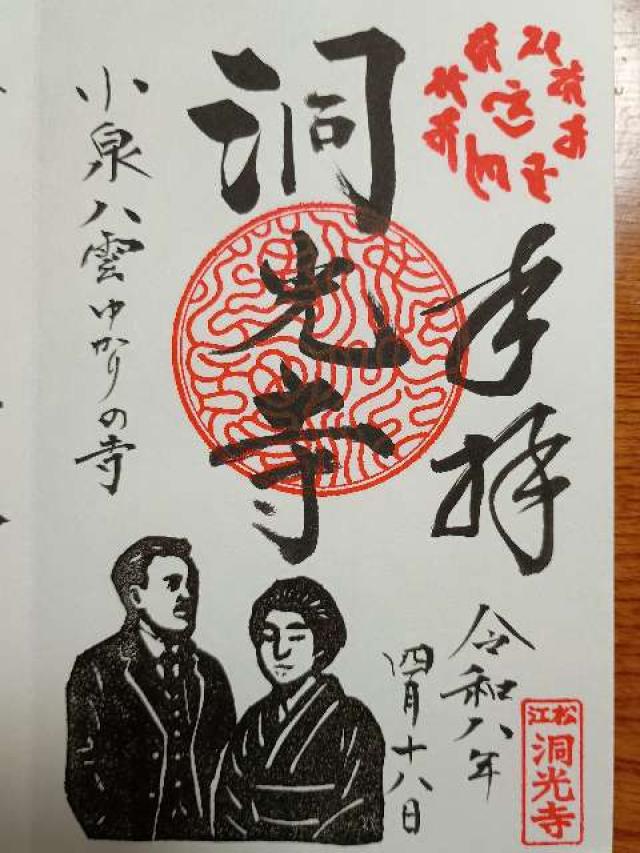 奉拝
洞光寺
小泉八雲ゆかりの寺
令和八年
四月十八日
松江
洞光寺